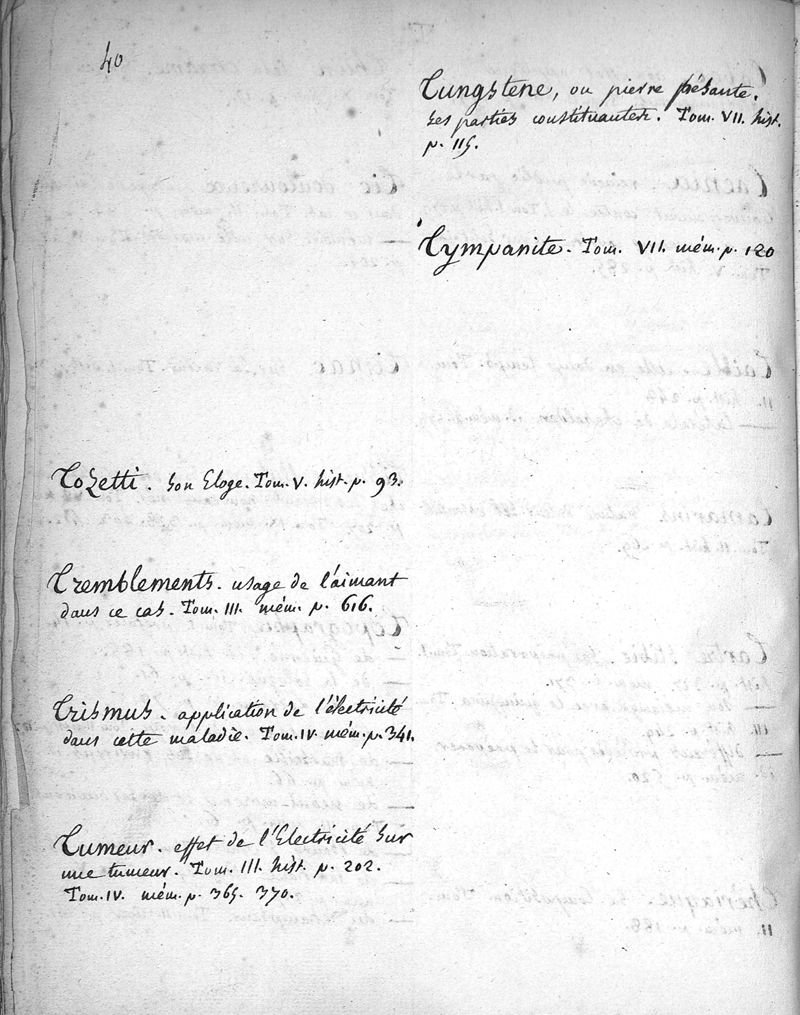 40
Tozetti. Son Eloge. Tom. V. hist. p. 93.
Tremblements. usage de l'aimant
dans ce cas. Tom. III. mém. p. 616.
Trismus. application de l'électricité
dans cette maladie. Tom. IV. mém. p. 341.
Tumeur. effet de l'Electricité sur
une tumeur. Tom. III. hist. p. 202.
Tom. IV. mém. p. 365. 370.
Tungstene, ou pierre pésante.
ses parties constituantes. Tom. VII. hist.
p. 115.
Tympanite. Tom. VII. mém. p. 120